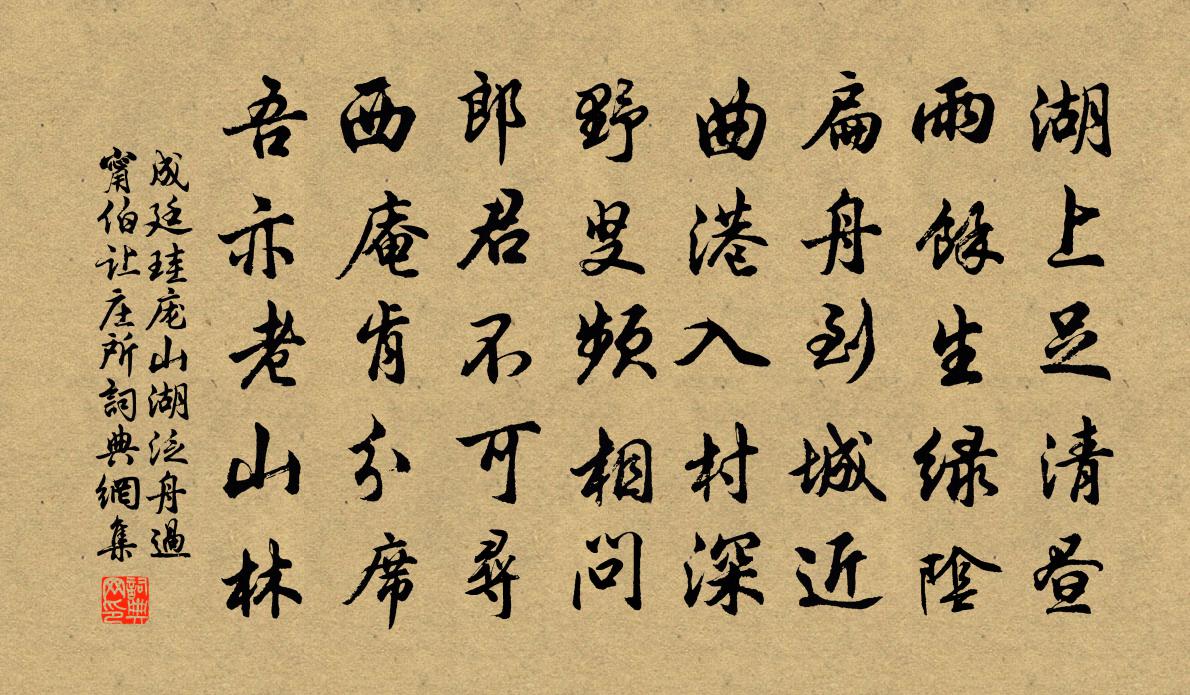 湖上足清昼
雨餘生緑陰
扁舟到城近
曲港入村深
野叟頻相問
郎君不可尋
西庵肯分席
吾亦老山林
成廷珪庞山湖泛舟過
甯伯让庄所詞典網集
詞典
网印